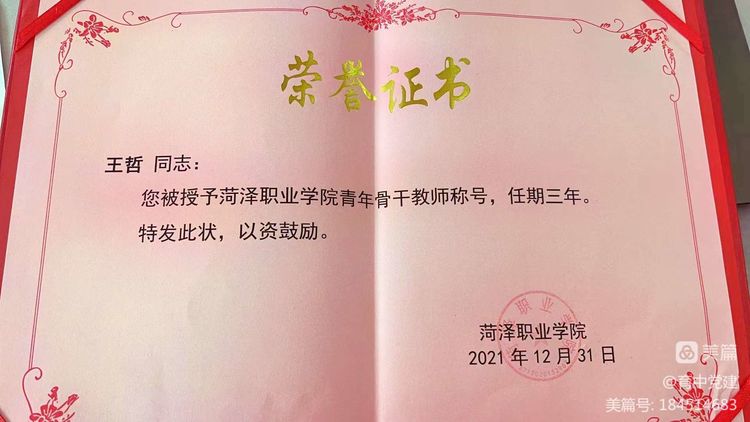 荣誉证书
王哲 同志：
您被授予菏泽职业学院青年骨干教师称号，任期三年。
特发此状，以资鼓励。
菏泽职业学院
2021年12月31日
美篇
@育中党建
美篇号: 184514683